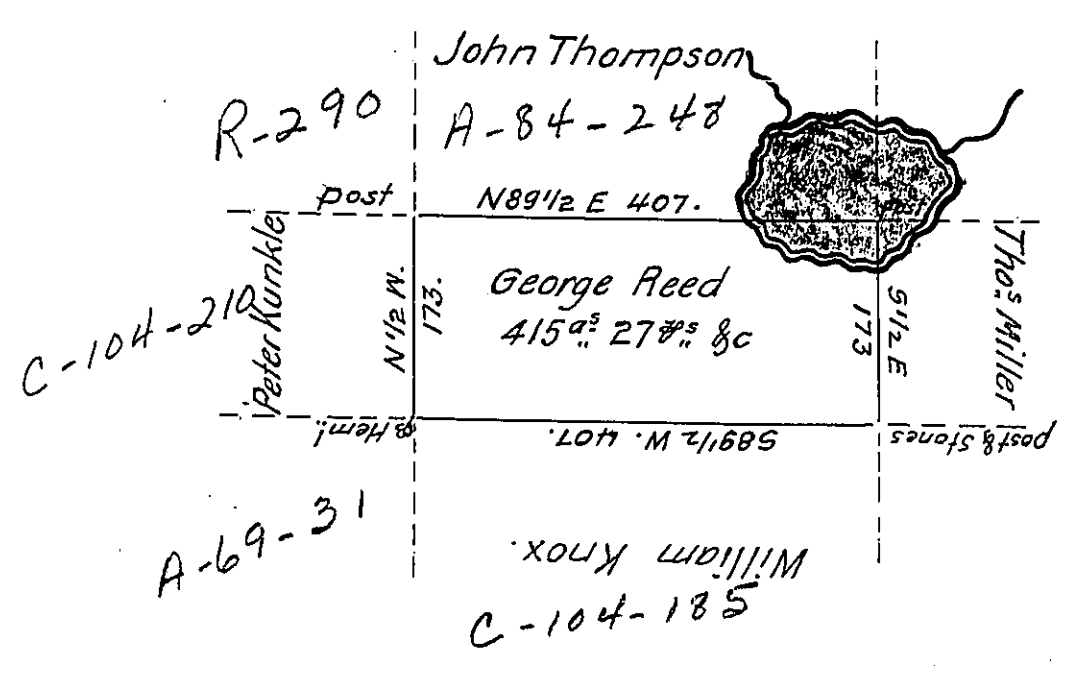 John Thompson
R-290
A-84-248
post
N89 1/2 E 407.
post
Peter Kunkle
N 1/2 W.
173.
George Reed
415 a.s 27 p.s &c
S 1/2 E
173
Thos. Miller
C-104-210
Heml.
S89 1/2 W. 407.
post & Stones
A-69-31
William Knox.
C-104-185